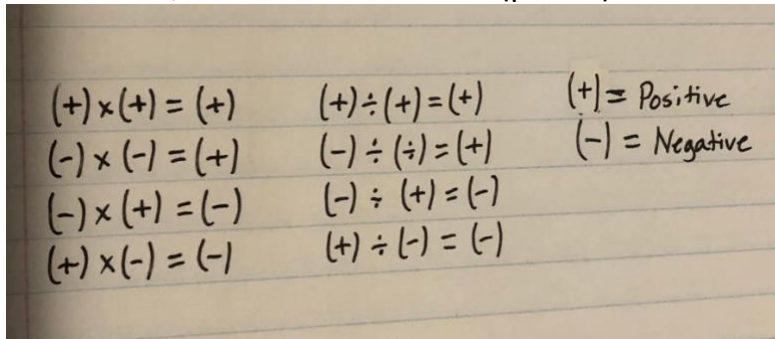 (+) × (+) = (+)
(-) × (-) = (+)
(-) × (+) = (-)
(+) × (-) = (-)
(+) ÷ (+) = (+)
(-) ÷ (÷) = (+)
(-) ÷ (+) = (-)
(+) ÷ (-) = (-)
(+) = Positive
(-) = Negative